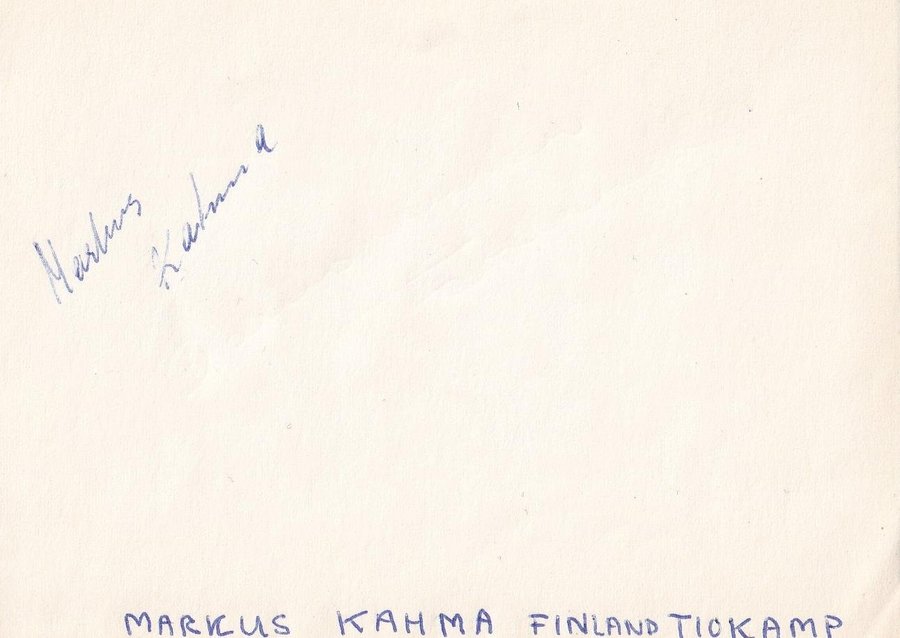 Markus
Kahma
MARKUS KAHMA FINLAND TIOKAMP